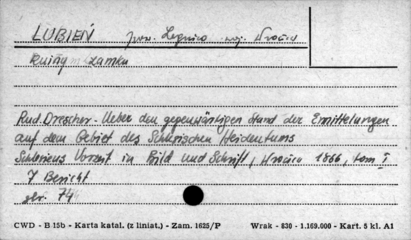 LUBIEŃ pow. Legnica woj. Wrocław
Ruiny zamku
Rud. Drescher. Ueber den gegenwärtigen Stand der Ermittelungen
auf dem Gebiet des Schlesischen Heidentums
Schlesiens Vorzeit in Bild und Schrift, Wrocław 1866, tom I
7 Bericht
str. 74
CWD - B 15b - Karta katal. (z liniat.) - Zam. 1625/P Wrak - 830 - 1.169.000 - Kart. 5 kl. A1